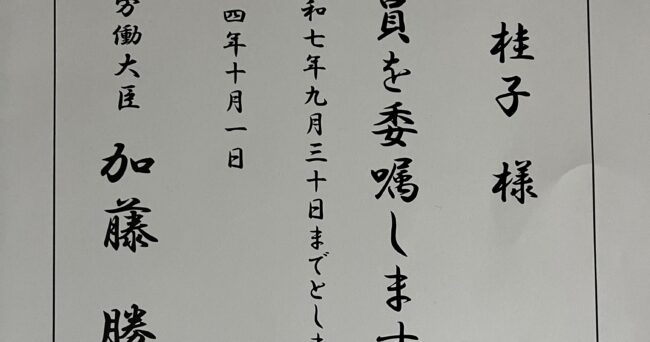 桂子 様
員を委嘱します
和七年九月三十日までとしま
四年十月一日
労働大臣 加藤 勝